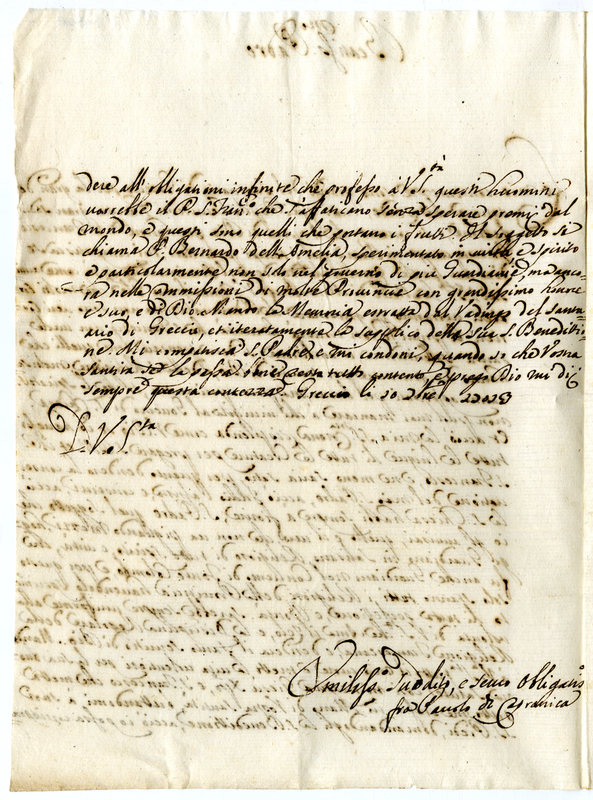 dere all'obligationi infinite che professo à V. S.tà questi huomini
vorrebbe il P. S. Fran.co che s'affaticano senza sperare premi dal
mondo, e questi sono quelli che portano i frutti. Il sogetto si
chiama P. Bernardo dell'Amelia, sperimentato in virtù e spirito
e particolarmente non solo nel governo di più Guardianie, ma anco-
ra nelle commissioni di molte Provincie con grandissimo honore
e suo, e di Dio. Mando la Memoria estratta dal Vadingo del Santu-
ario di Greccio, et iteratamente la supplico della sua S. Beneditti-
ne. Mi compatisca S. Padre, e mi condoni, quando so che Vostra
Santità se la passa bene resto tutto contento e prego Dio mi dia
sempre questa contezza. Greccio li 10
D. V. S.tà
Humiliss.o Suddito, e servo obligatis.o
fra Pauolo di